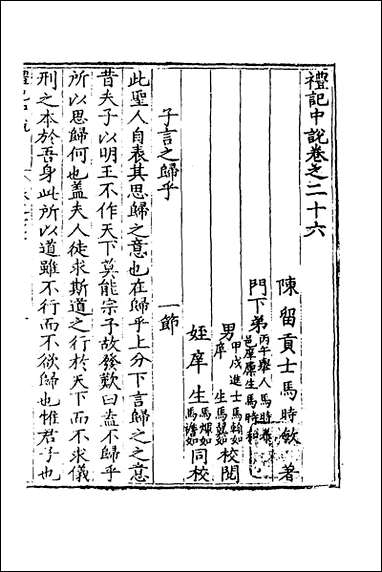 禮記中說卷之二十六
陳留貢士馬時敏著
門下弟丙午舉人馬時
邑庠廪生馬時
男甲戌進士馬翰如
庠生馬如校閱
姪庠生馬如
馬如同校
子言之歸乎 一節
此聖人自表其思歸之意也在歸乎上分下言歸之之意
昔夫子以明王不作天下莫能宗子故發歎曰盍不歸乎
所以思歸何也盖夫人徒求斯道之行於天下而不求儀
刑之本於吾身此所以道雖不行而不欲歸也惟君子也